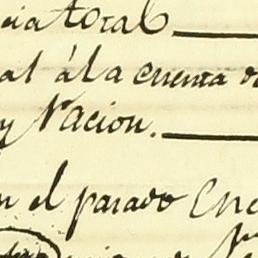 cia total
al á la cuenta de
y Nacion.
n el pasado Ene